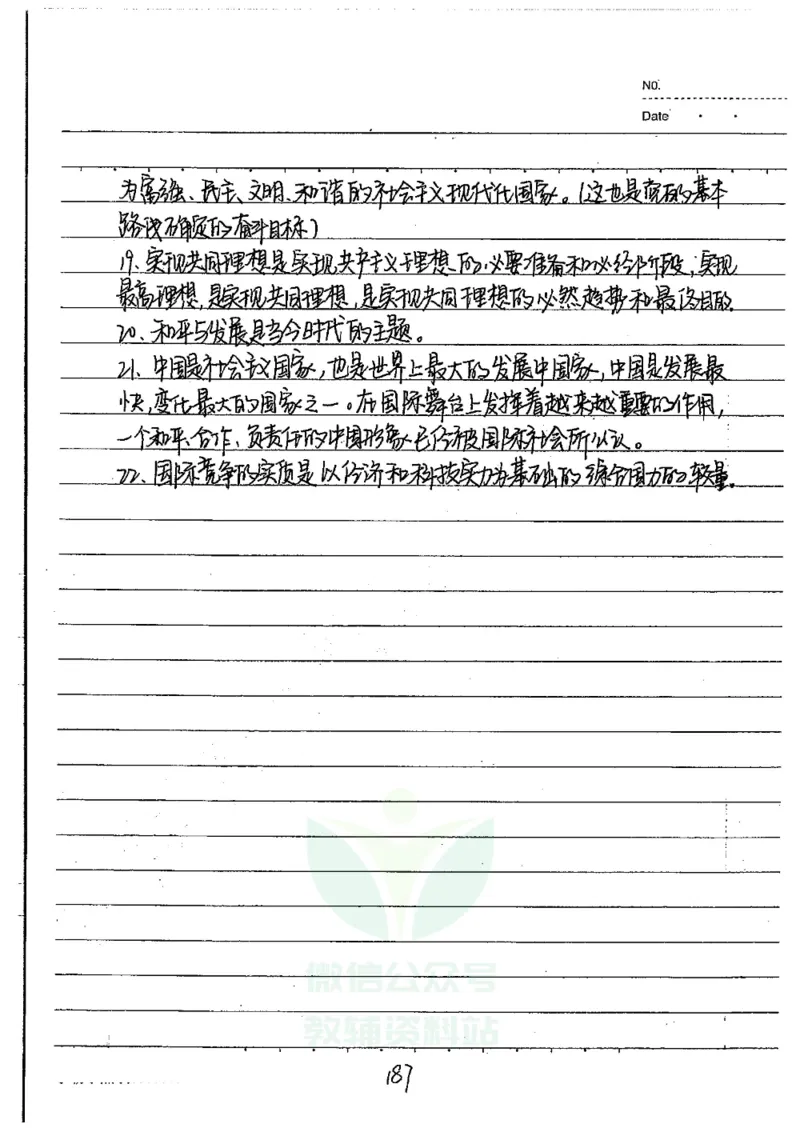 No.
Date
为富强、民主、文明、和谐的社会主义现代化国家。(这也是党的基本
路线确定的奋斗目标)
19、实现共同理想是实现共产主义理想的必要准备和必经阶段;实现
最高理想,是实现共同理想,是实现共同理想的必然趋势和最终目的.
20、和平与发展是当今时代的主题。
21、中国是社会主义国家,也是世界上最大的发展中国家,中国是发展最
快,变化最大的国家之一。在国际舞台上发挥着越来越重要的作用,
一个和平、合作、负责任的中国形象已经被国际社会所公认。
22、国际竞争的实质是以经济和科技实力为基础的综合国力的较量.
微信公众号
教辅资料站
187